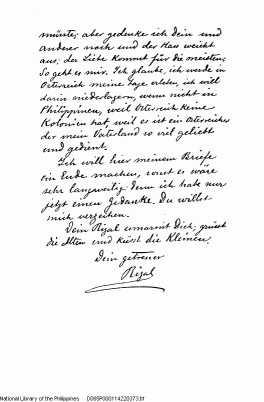 müsste; aber gedenke ich dein und
anderer noch und der Hass weicht
aus, der Liebe kommt für die meisten;
So geht es mir. Ich glaube, ich werde in
Österreich meine Tage erleben, ich will
darin niederlagern, wenn nicht in
Philippinen, weil Österreich keine
Kolonien hat, weil es ist ein Österreicher
der mein Vaterland so viel geliebt
und gedient.
Ich will hier meinem Briefe
ein Ende machen, sonst es wäre
sehr langweilig denn ich habe nur
jetzt einen Gedanke. Du willst
mich verzeihen.
Dein Rizal umarmt Dich, grüsst
die Alten und küsst die Kleinen.
Dein getreuer
Rizal
National Library of the Philippines D085P000114220373.tif